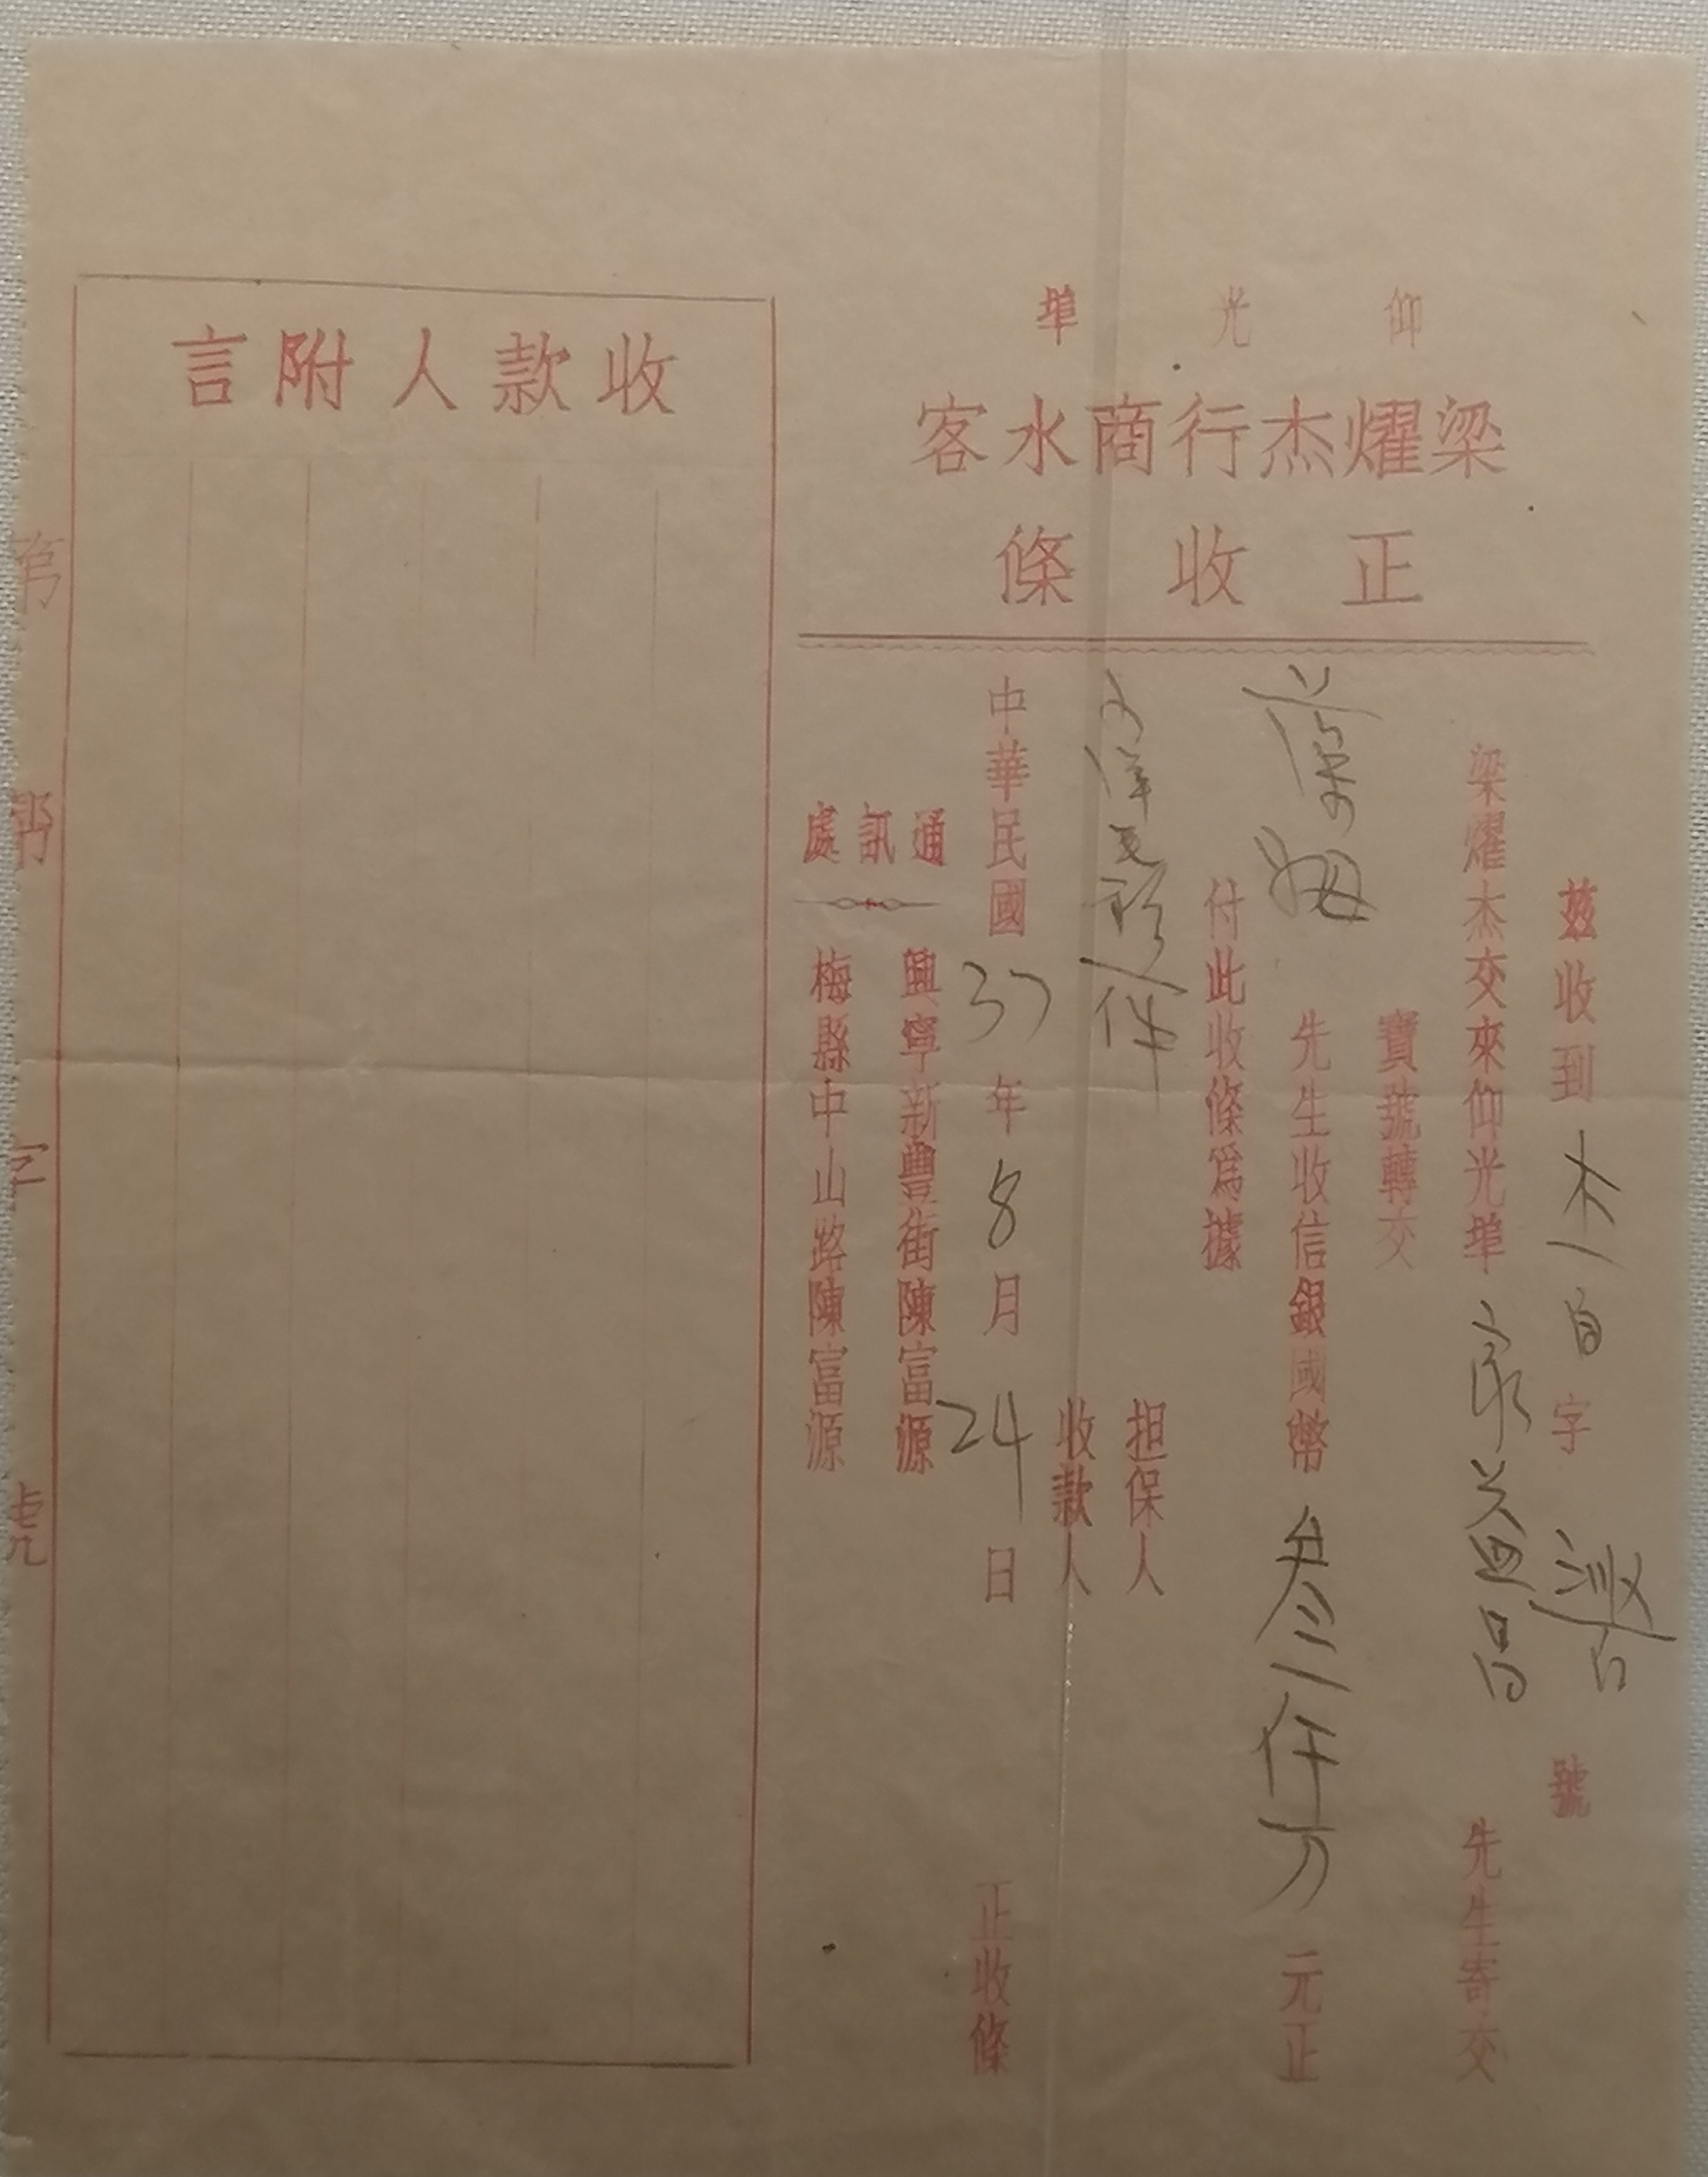 仰光埠
梁燿杰行商水客
正收條
茲收到 杰自 字 號
梁燿杰交來仰光埠 家益昌 先生寄交
寶號轉交
先生收信銀國幣 叁仟万 元正
付此收條為據
担保人
收款人
中華民國 37 年 8 月 24 日 正收條
通訊處
興寧新豐街陳富源
梅縣中山路陳富源
收款人附言